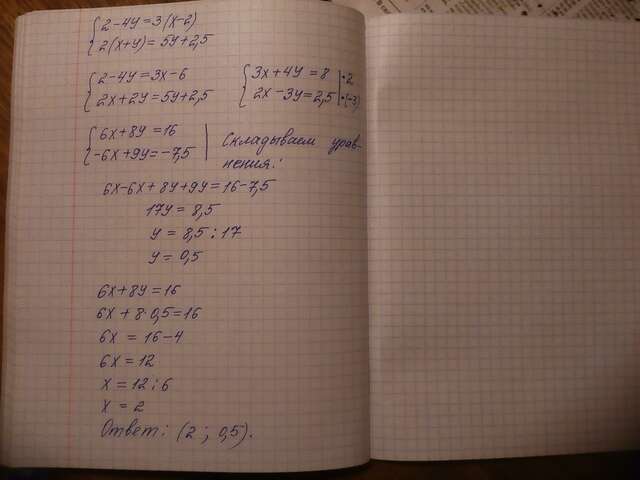 2-4y=3(x-2)
2(x+y)=5y+2,5
2-4y=3x-6
2x+2y=5y+2,5
3x+4y=8 |·2
2x-3y=2,5 |·(-3)
6x+8y=16
-6x+9y=-7,5
Складываем урав-
нения:
6x-6x+8y+9y=16-7,5
17y=8,5
y=8,5:17
y=0,5
6x+8y=16
6x+8·0,5=16
6x=16-4
6x=12
x=12:6
x=2
Ответ: (2; 0,5).